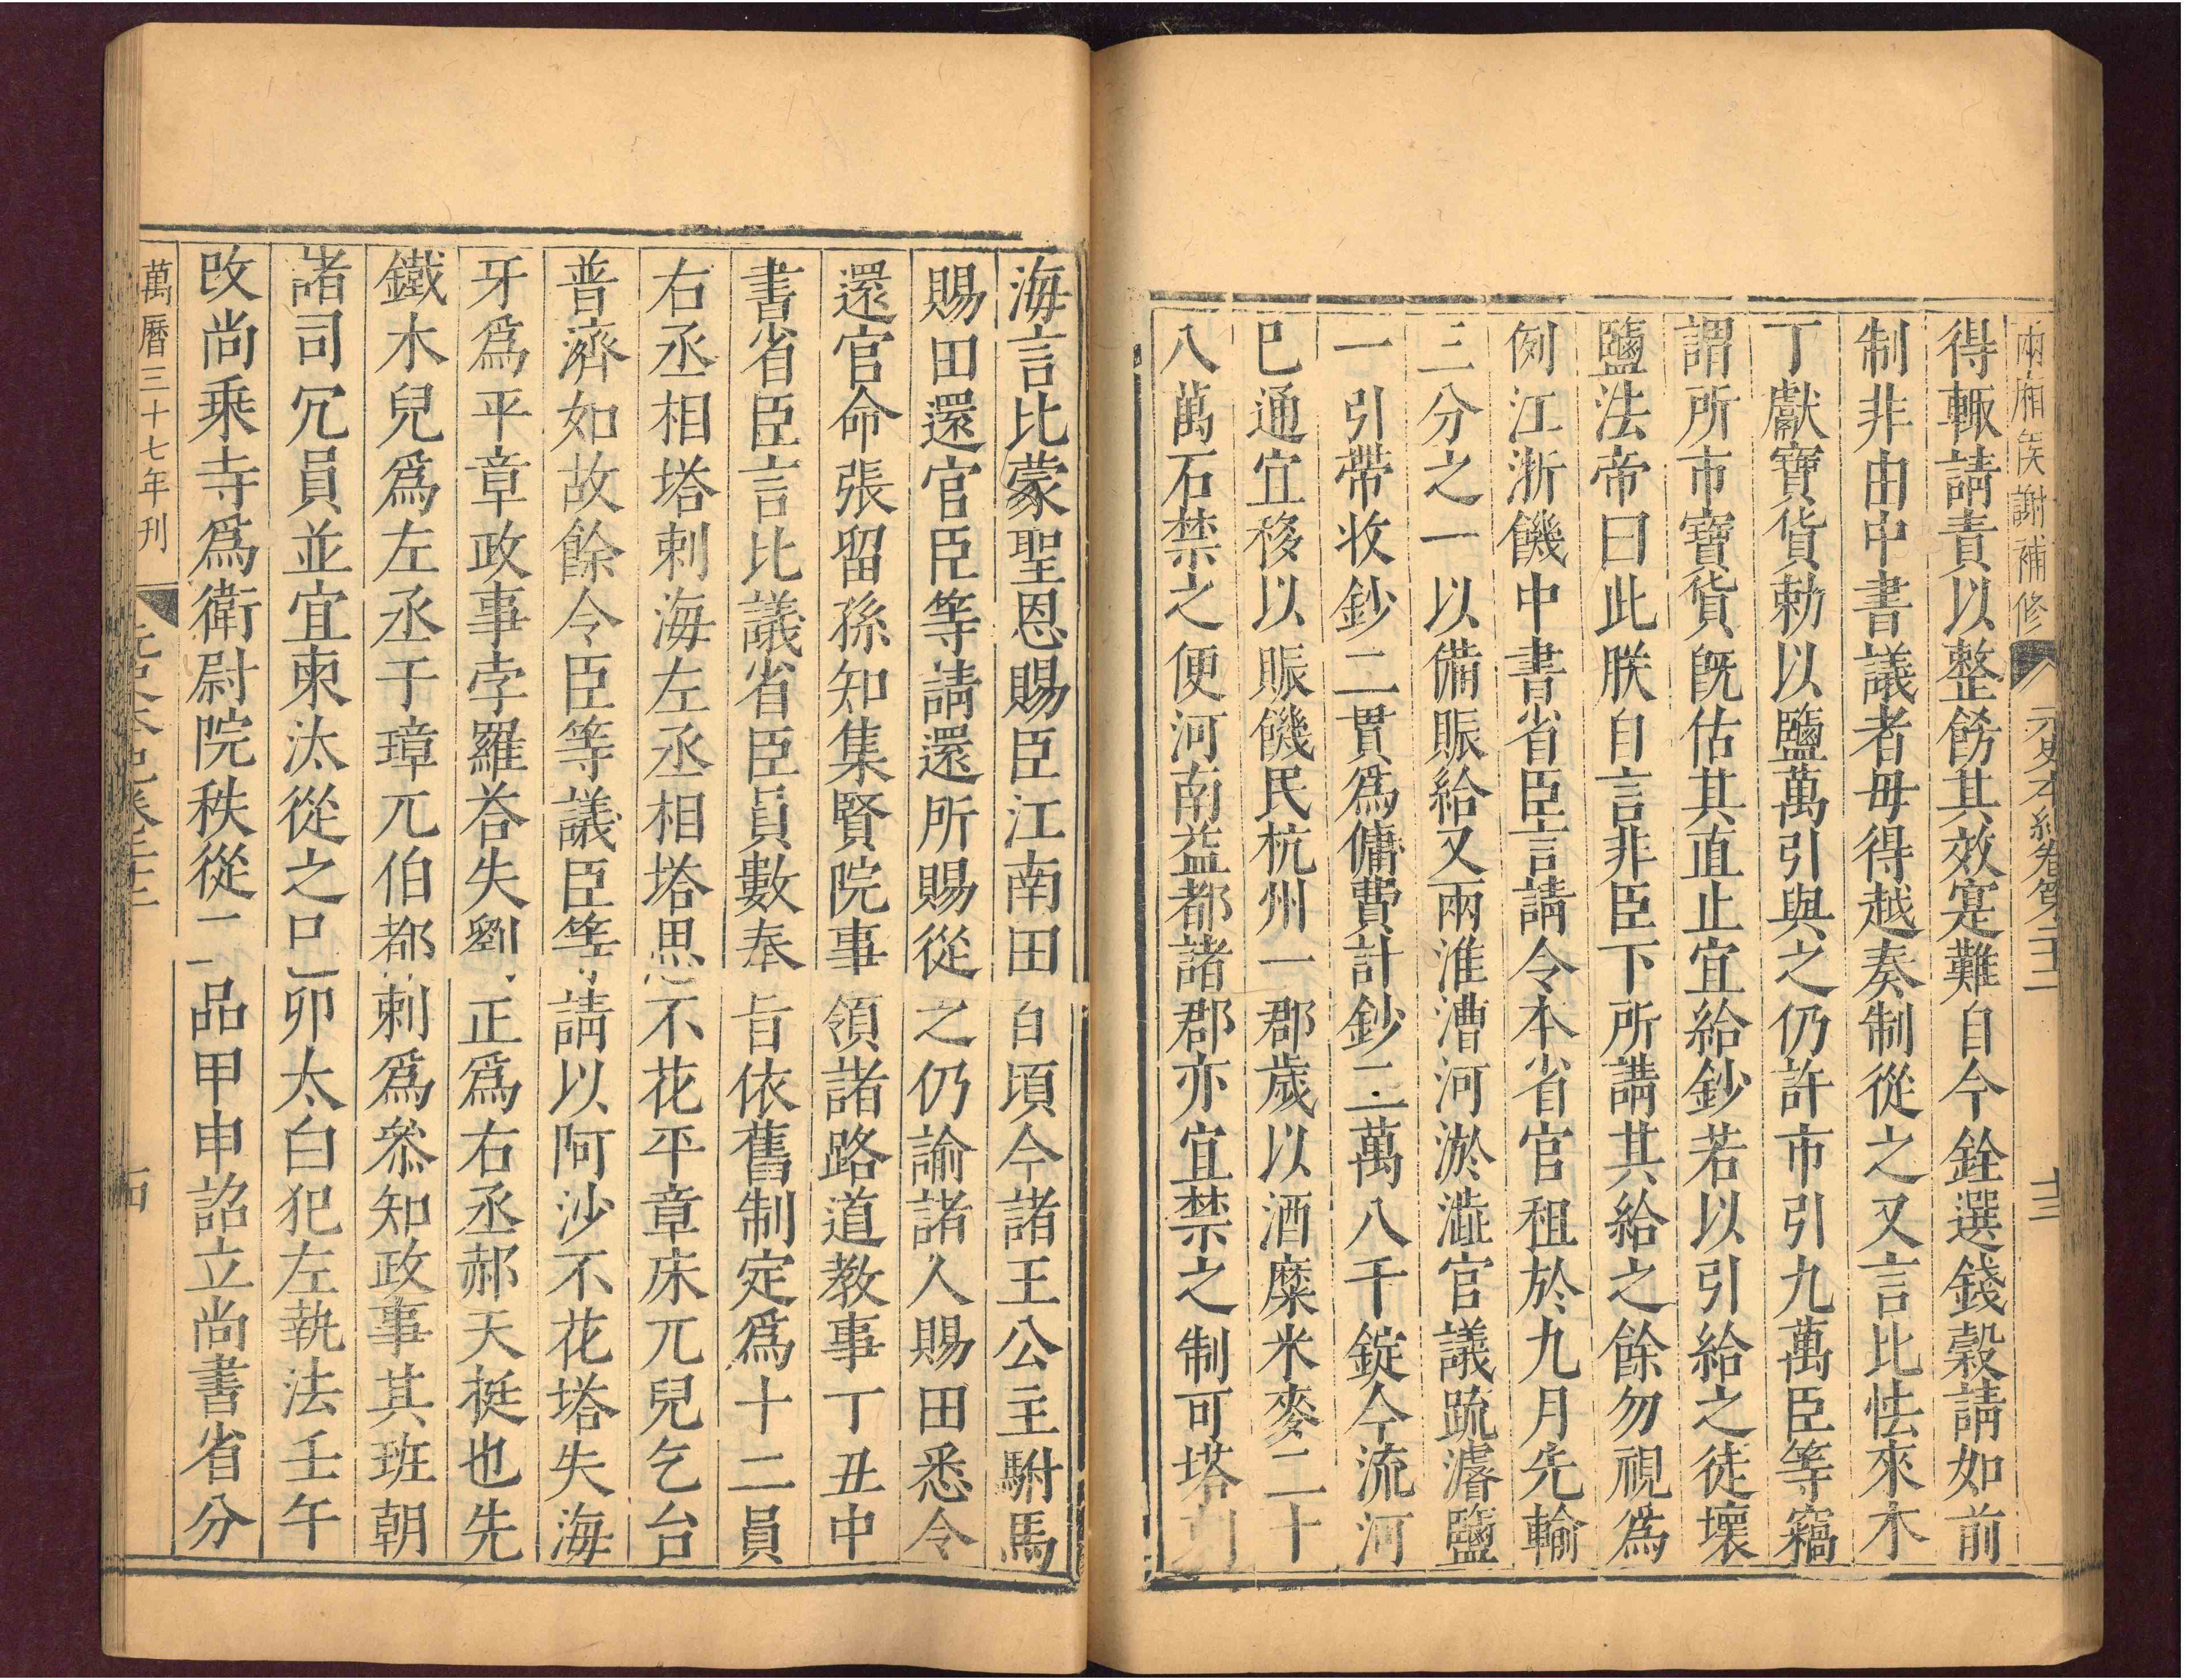 兩廂族謝補修 元史本紀卷第二十二 十三
得輒請責以整飭其效寔難自今銓選錢穀請如前
制非由中書議者毋得越奏制從之又言比怯來木
丁獻寶貨勅以鹽萬引與之仍許市引九萬臣等竊
謂所市寶貨旣估其直止宜給鈔若以引給之徒壞
鹽法帝曰此朕自言非臣下所請其給之餘勿視爲
例江浙饑中書省臣言請令本省官租於九月先輸
三分之一以備賑給又兩淮漕河淤澁官議疏濬鹽
一引帶收鈔二貫爲傭費計鈔二萬八千錠今流河
已通宜移以賑饑民杭州一郡歲以酒糜米麥二十
八萬石禁之便河南益都諸郡亦宜禁之制可塔剌
海言比蒙聖恩賜臣江南田百頃今諸王公主駙馬
賜田還官臣等請還所賜從之仍諭諸人賜田悉令
還官命張留孫知集賢院事領諸路道教事丁丑中
書省臣言比議省臣員數奉旨依舊制定爲十二員
右丞相塔剌海左丞相塔思不花平章床兀兒乞台
普濟如故餘令臣等議臣等請以阿沙不花塔失海
牙爲平章政事孛羅荅失劉正爲右丞郝天挺也先
鐵木兒爲左丞于璋兀伯都剌爲叅知政事其班朝
諸司冗員並宜柬汰從之已卯太白犯左執法壬午
改尚乘寺爲衛尉院秩從二品甲申詔立尚書省分
萬曆三十七年刊 元史本紀卷二十二 十四